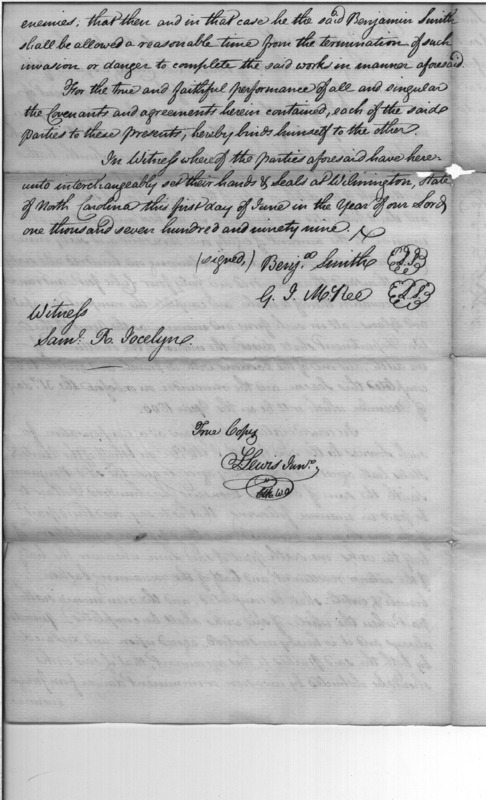 enemies; that then and in that case he the said Benjamin Smith
shall be allowed a reasonable time from the termination of such
invasion or danger to complete the said work in manner aforesaid.
For the true and faithful performance of all and singular
the Covenants and agreements herein contained, each of the said
Parties to these presents, hereby binds himself to the other.
In Witness whereof the parties aforesaid have here-
unto interchangeably set their hands & Seals at Wilmington, State
of North Carolina this first day of June in the Year of our Lord
one thousand seven hundred and ninety nine.
(signed,) Benjn. Smith
G. J. McRee
Witness
Saml. R. Jocelyn.
True Copy
Lewis Junr.